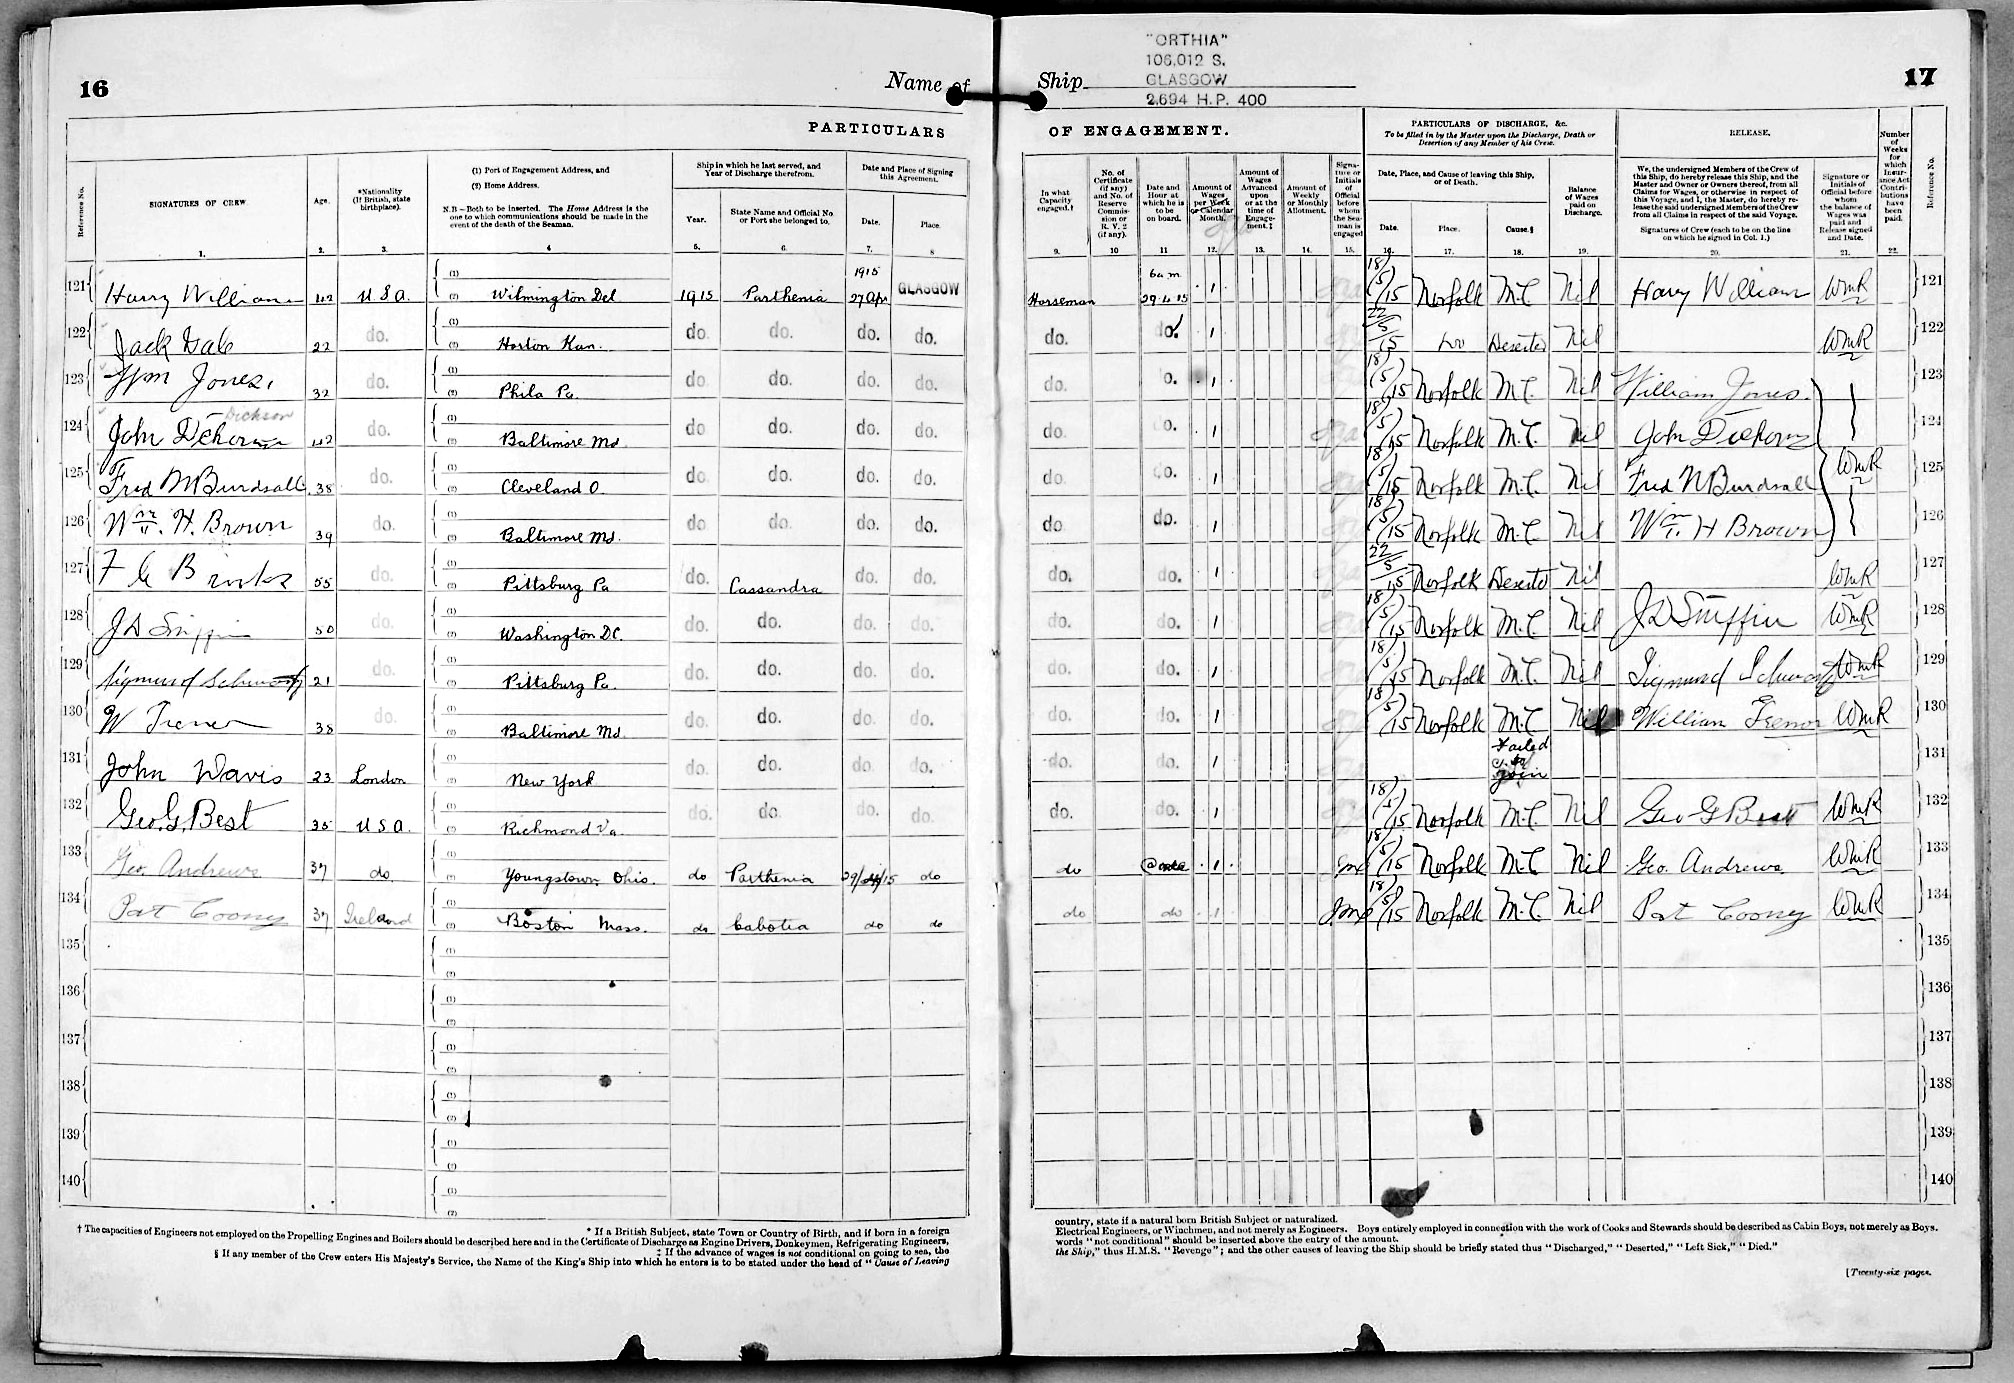 16
Name of
PARTICULARS
Reference No.
SIGNATURES OF CREW
Age.
*Nationality
(If British, state
birthplace).
(1) Port of Engagement Address, and
(2) Home Address.
N.B—Both to be inserted. The Home Address is the
one to which communications should be made in the
event of the death of the Seaman.
Ship in which he last served, and
Year of Discharge therefrom.
Year.
State Name and Official No.
or Port she belonged to.
Date and Place of Signing
this Agreement.
Date.
Place.
1. 2. 3. 4 5. 6. 7. 8
121 Harry William 42 U.S.A. (1) (2) Wilmington Del 1915 Parthenia 1915 27 Apr GLASGOW
122 Jack Dale 22 do. (1) (2) Horton Kan. do. do. do. do.
123 Wm Jones. 32 do. (1) (2) Phila Pa. do do. do. do.
124 John Dickson 42 do. (1) (2) Baltimore Md do. do. do. do.
125 Fred N Burdsall 38 do. (1) (2) Cleveland O. do. do. do. do.
126 Wm. H. Brown 39 do. (1) (2) Baltimore Md. do do. do. do.
127 F G B 55 do. (1) (2) Pittsburg Pa do. Cassandra do. do.
128 J D Sniffin 50 do. (1) (2) Washington D.C. do. do. do. do.
129 Sigmund Schwartz 21 do. (1) (2) Pittsburg Pa. do. do. do. do.
130 W Trenor 38 do. (1) (2) Baltimore Md do. do. do. do.
131 John Davis 23 London (1) (2) New York do. do. do. do.
132 Geo. G. Best 35 U.S.A. (1) (2) Richmond Va do. do. do. do.
133 Geo. Andrews 37 do. (1) (2) Youngstown Ohio. do Parthenia 29/4/15 do
134 Pat Cooney 37 Ireland (1) (2) Boston Mass. do Cabotia do do
135 (1) (2)
136 (1) (2)
137 (1) (2)
138 (1) (2)
139 (1) (2)
140 (1) (2)
† The capacities of Engineers not employed on the Propelling Engines and Boilers should be described here and in the Certificate of Discharge as Engine Drivers, Donkeymen, Refrigerating Engineers,
* If a British Subject, state Town or Country of Birth, and if born in a foreign
‡ If the advance of wages is not conditional on going to sea, the
§ If any member of the Crew enters His Majesty's Service, the Name of the King's Ship into which he enters is to be stated under the head of "Cause of Leaving
"ORTHIA"
106,012 S.
GLASGOW
2,694 H.P. 400
Ship
17
OF ENGAGEMENT.
In what
Capacity
engaged.†
No. of
Certificate
(if any)
and No. of
Reserve
Commis-
sion or
R. V. 2
(if any).
Date and
Hour at
which he is
to be
on board.
Amount of
Wages
per Week
or Calendar
Month.
Amount of
Wages
Advanced
upon
or at the
time of
Engage-
ment.‡
Amount of
Weekly
or Monthly
Allotment.
Signa-
ture or
Initials
of
Official
before
whom
the Sea-
man is
engaged
PARTICULARS OF DISCHARGE, &c.
To be filled in by the Master upon the Discharge, Death or
Desertion of any Member of his Crew.
Date, Place, and Cause of leaving this Ship,
or of Death.
Date.
Place.
Cause.§
Balance
of Wages
paid on
Discharge.
RELEASE.
We, the undersigned Members of the Crew of
this Ship, do hereby release this Ship, and the
Master and Owner or Owners thereof, from all
Claims for Wages, or otherwise in respect of
this Voyage, and I, the Master, do hereby re-
lease the said undersigned Members of the Crew
from all Claims in respect of the said Voyage.
Signatures of Crew (each to be on the line
on which he signed in Col. 1.)
Signature or
Initials of
Official before
whom
the balance of
Wages was
paid and
Release signed
and Date.
Number
of
Weeks
for
which
Insur-
ance Act
Contri-
butions
have
been
paid.
Reference No.
9. 10 11 12. 13. 14. 15. 16. 17. 18. 19. 20. 21. 22.
Horseman 6 am 29.4.15 1 18/5/15 Norfolk M.C. Nil Harry William WmR 121
do. do. 1 22/5/15 do Deserted Nil WmR 122
do. o. 1 18/5/15 Norfolk M.C. Nil William Jones. 123
do. do. 1 18/5/15 Norfolk M.C. Nil John Dickson 124
do. do. 1 18/5/15 Norfolk M.C. Nil Fred N Burdsall WmR 125
do. do. 1 18/5/15 Norfolk M.C. Nil Wm. H Brown 126
do. do. 1 22/5/15 Norfolk Deserted Nil WmR 127
do. do. 1 18/5/15 Norfolk M.C. Nil J D Sniffin WmR 128
do. do. 1 18/5/15 Norfolk M.C. Nil Sigmund Schwartz WmR 129
do. do. 1 18/5/15 Norfolk M.C. Nil William Trenor WmR 130
do. do. 1 Failed to join 131
do. do. 1 18/5/15 Norfolk M.C. Nil Geo G Best WmR 132
do 1 18/5/15 Norfolk M.C. Nil Geo. Andrews WmR 133
do do 1 18/5/15 Norfolk M.C. Nil Pat Cooney WmR 134
135
136
137
138
139
140
country, state if a natural born British Subject or naturalized.
Electrical Engineers, or Winchmen, and not merely as Engineers. Boys entirely employed in connection with the work of Cooks and Stewards should be described as Cabin Boys, not merely as Boys.
words "not conditional" should be inserted above the entry of the amount.
the Ship," thus H.M.S. "Revenge"; and the other causes of leaving the Ship should be briefly stated thus "Discharged," "Deserted," "Left Sick," "Died."
[Twenty-six pages.